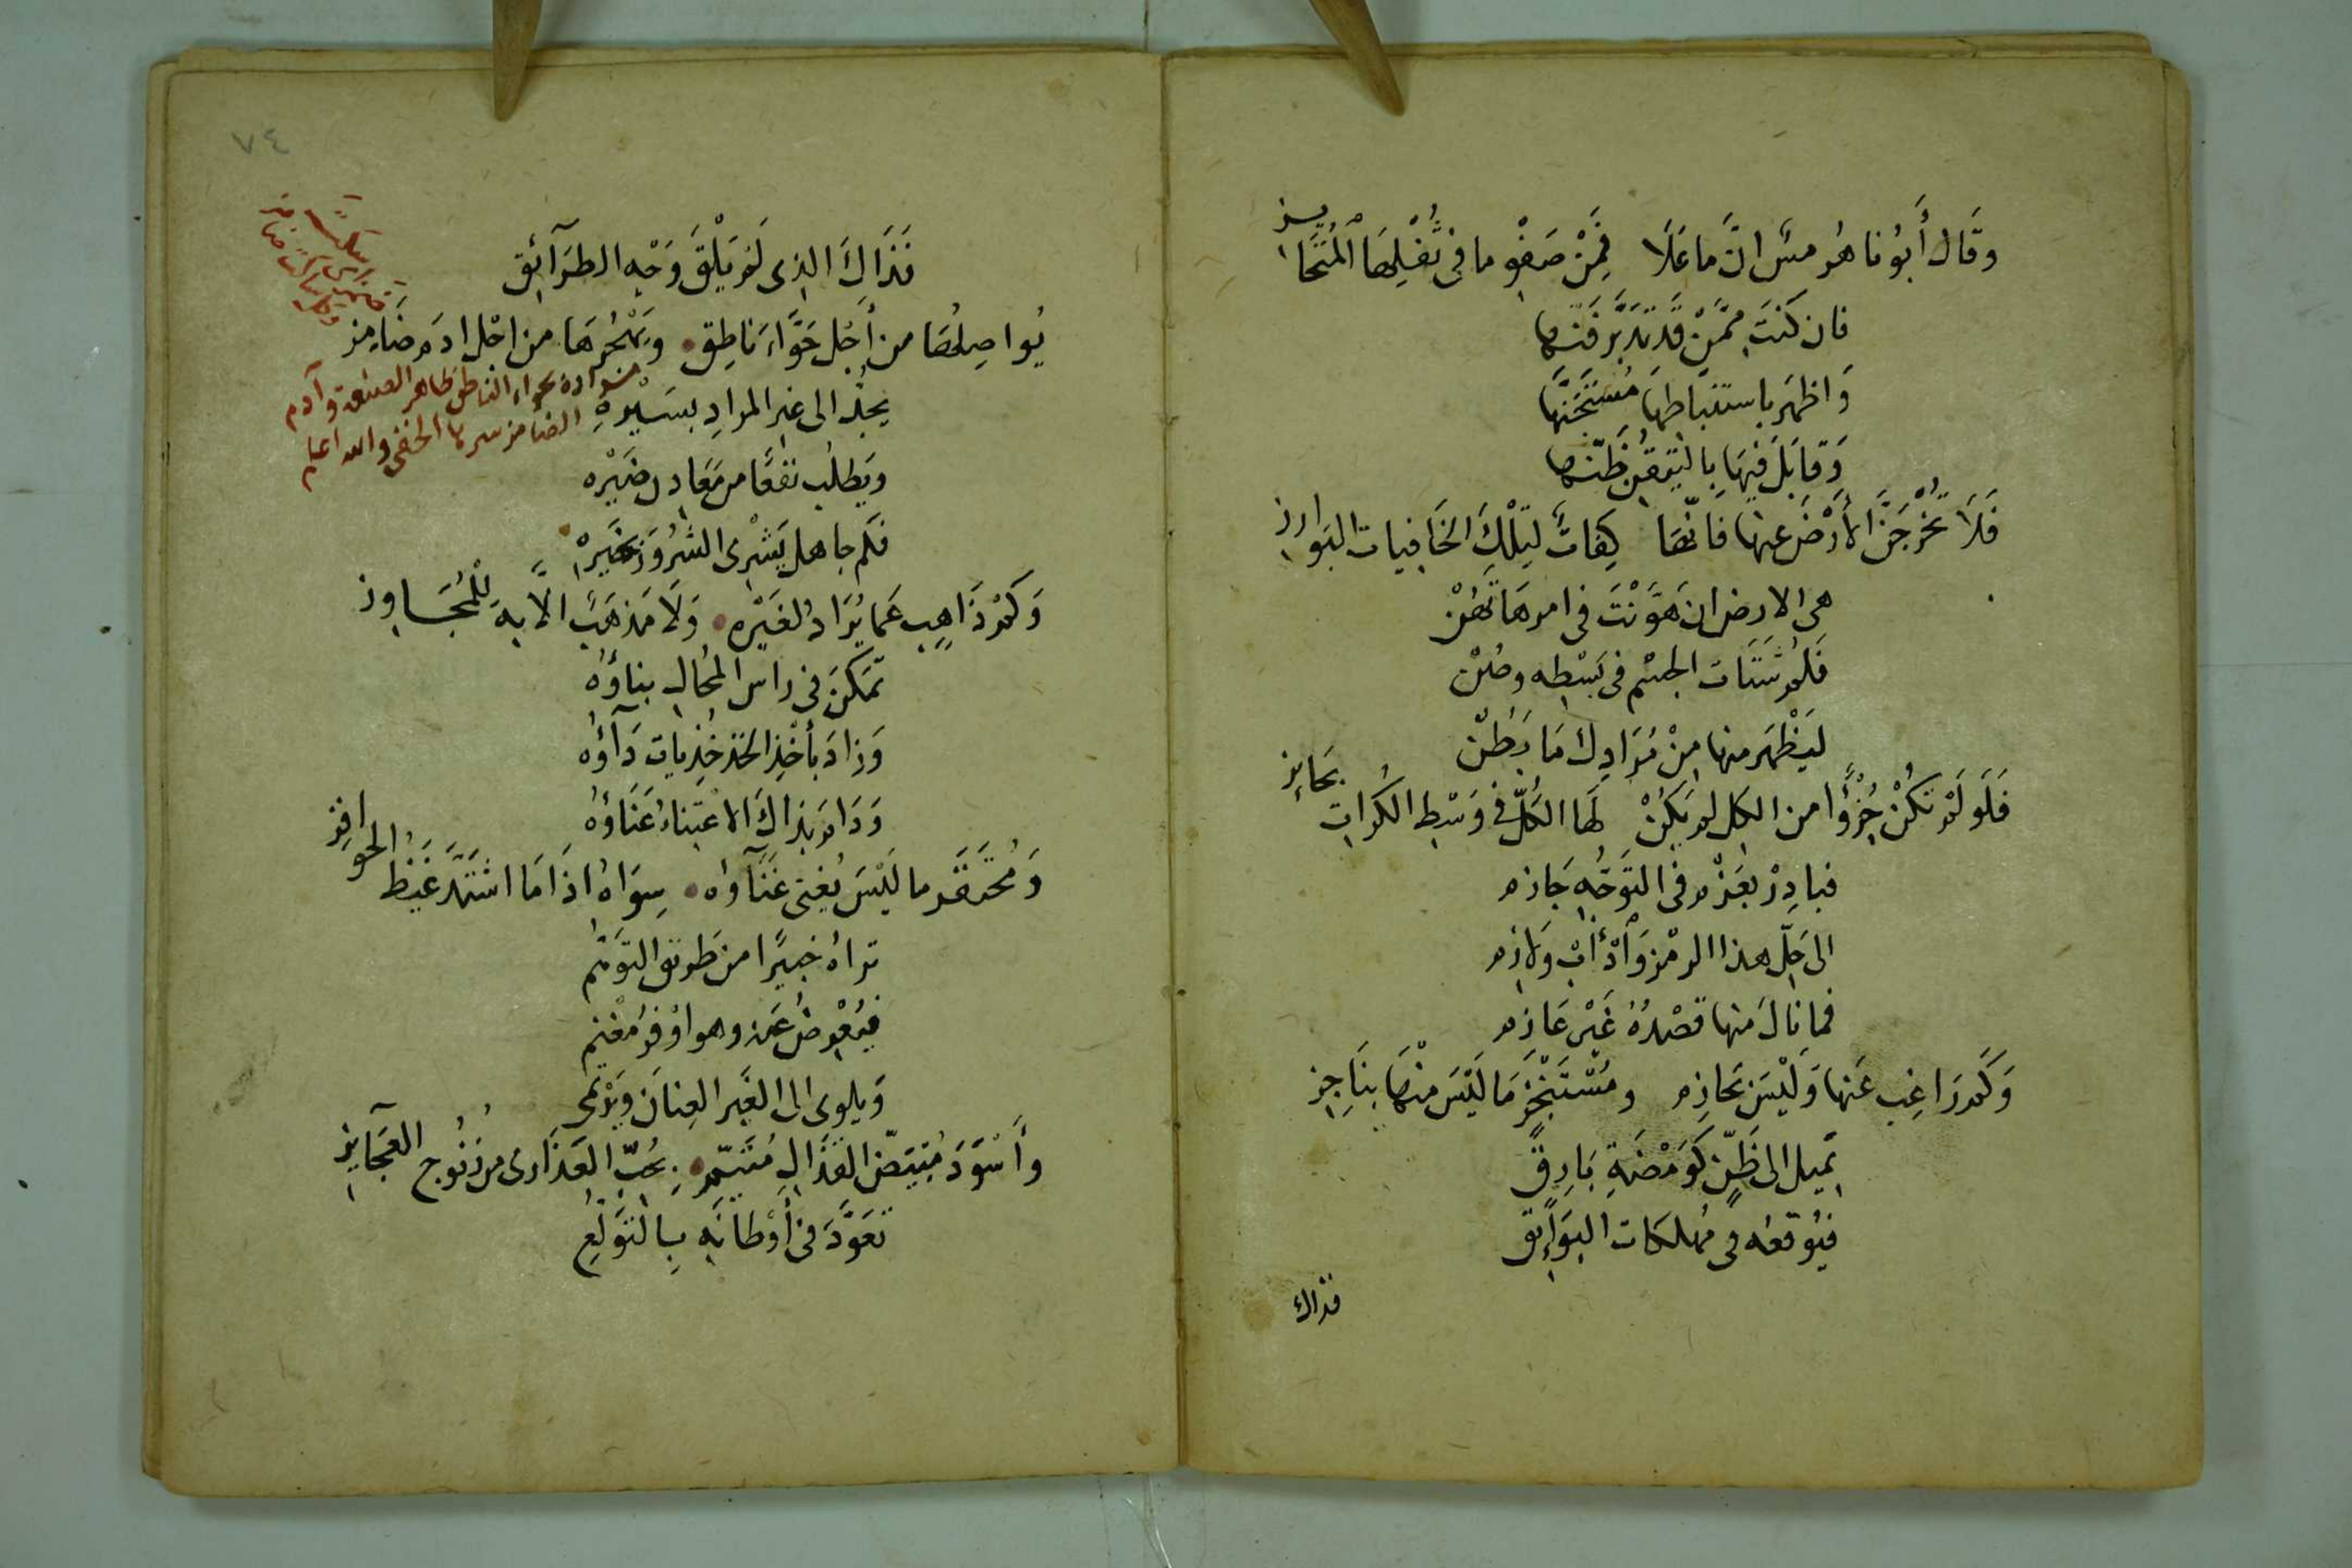 وقَال أَبُونا هُرمسٌ انَّ ما عَلَا فَمِنْ صَفْوِ ما فى ثُفْلِهَا الْمُتَحَايز
فان كنتَ مِمَّنْ قد تدبَّر فَنّها
وَاظهَر باستنباطِها مُسْتَجَنَّها
وَقابَلَ فيهَا باليَقينِ ظَنَّها
فَلَا تُخْرِجَنَّ الأَرْضَ عنها فانَّهَا كِفاتٌ لِتِلْكَ الخَافيات البَوارز
هى الارض ان هَوَّنْتَ فى امرهَا تَهُنْ
فَلُمْ شَتَات الجسْم فى بَسْطِه وصُنْ
ليَظْهَر منها مِنْ مُرَادِك مَا بَطُنْ
فَلَو لَمْ تكُنْ جُزْؤًا من الكل لم يَكُنْ لَهَا الكُلُّ فى وَسْطِ الكُرات بحَايز
فبادِرْ بعَزْم فى التَّوَجُّهِ جَازم
الى حَلّ هذا الرمْز وَادْأَبْ وَلازم
فما نالَ منها قصْدَهُ غَيْر عَازم
وَكَم رَاغِبٍ عَنها وَلَيْسَ بحَازم ومُسْتَنْجِزٍ مَا لَيْسَ منْهَا بنَاجِز
يَميل الى ظَنٍّ كَوَمْضَةِ بَارِقٍ
فيُوقعُه فى مُهلكات البَوَايق
فذاك
٧٤
فَذَاكَ الذى لَم يَلْقَ وَجْه الطرَآئق
يُواصِلُهَا من أَجْل حَوَّاءَ نَاطِق وَيَهْجُرهَا من اجْل ادَم ضَامز
مراده بحواء الناطق ظاهر الصنعة وآدم
الضامز سرها الخفى والله اعلم
يجِدُّ الى غير المرادِ بسَيْرهِ
ويَطلُب نفعًا من مَعَادِن ضَيْره
فكم جاهل يَشْرى الشرُورَ بخَيرْه
وَكَمْ ذَاهِبٍ عَما يُرَادُ لغَيْره وَلَا مَذهَبٌ الّا بهَ لِلْمُجَاوز
تمكنَ فى راس المُحالِ بناؤُهُ
وَزادَ بأخْذِ الخُذ خُذِيات دَآؤُه
وَدَام بذاكَ الاعتِناءُ عَنَاؤهُ
وَمُحتَقَر ما لَيْسَ يُغنى غَنَآؤه سِوَاهُ اذَا مَا اشتَدَّ غَيْظ الحوافِز
تراهُ خبيرًا من طريق التوَهّم
فيُعْرضُ عَنه وهو اوْفرُ مَغْنم
وَيلوى الى الغَير العِنانَ وَيَرْتمى
وأَسْوَدَ مُبْيَضّ القذَالِ مُتَيّم بحُبّ العَذَارى من زُنُوج العَجَآيز
تعَوَّدَ فى أَوْطانه بِالتوَلّع